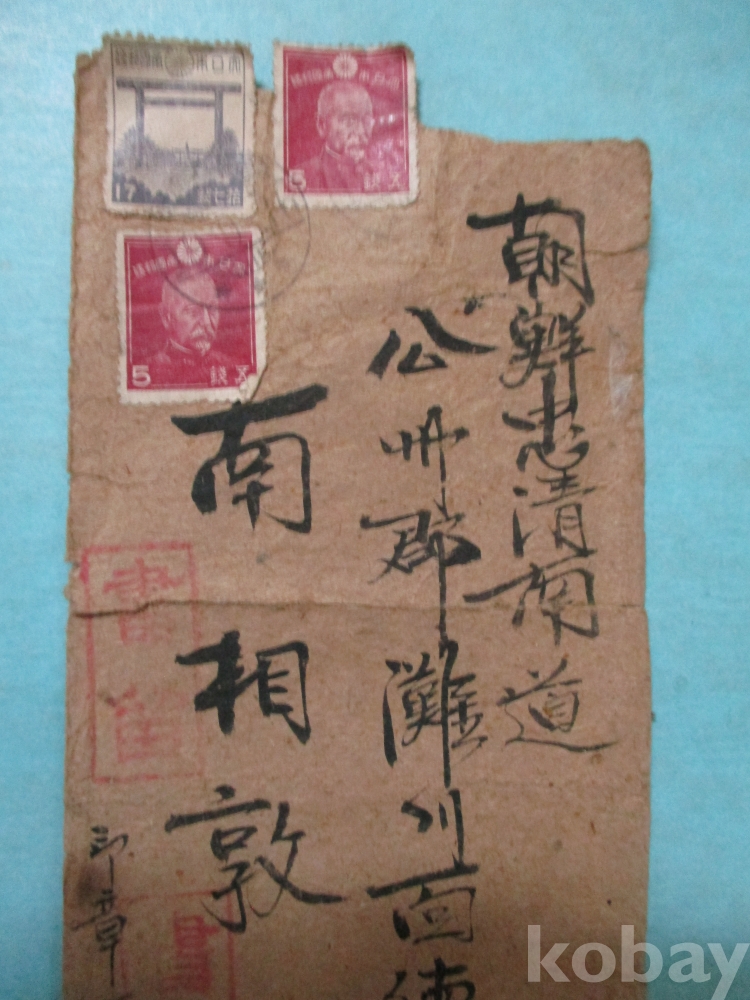 大日本帝國郵便
17
拾七銭
大日本帝國郵便
5
五銭
大日本帝國郵便
5
五銭
朝鮮忠清南道
公州郡灘川面徳
南相敦
書留
印章
書
kobay